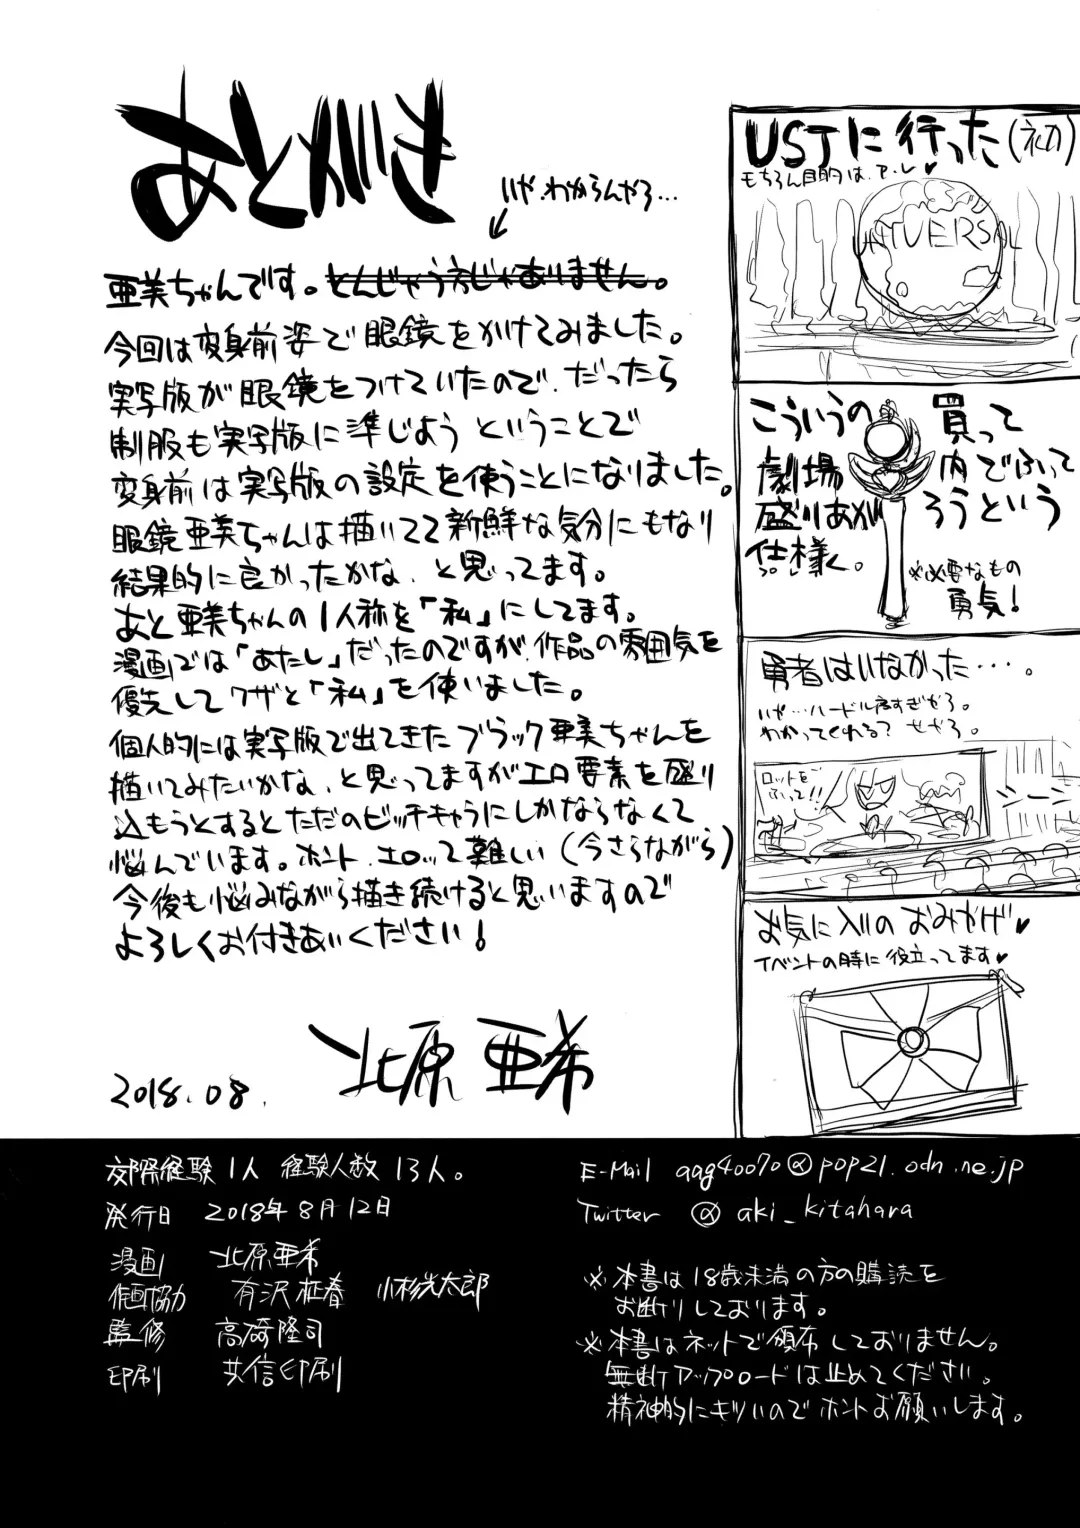 あとがき
いや、わからんやろ…
亜美ちゃんです。とんじゃうえじゃありません。
今回は変身前姿で眼鏡をかけてみました。
実写版が眼鏡をつけていたので、だったら
制服も実写版に準じよう ということで
変身前は実写版の設定を使うことになりました。
眼鏡亜美ちゃんは描いてて新鮮な気分にもなり
結果的に良かったかな、と思ってます。
あと亜美ちゃんの1人称を「私」にしてます。
漫画では「あたし」だったのですが、作品の雰囲気を
優先してワザと「私」を使いました。
個人的には実写版で出てきたブラック亜美ちゃんを
描いてみたいかな、と思ってますがエロ要素を盛り
込もうとするとただのビッチキャラにしかならなくて
悩んでいます。ホント、エロって難しい(今さらながら)
今後も悩みながら描き続けると思いますので
よろしくお付きあいください!
2018.08.
北原亜希
USJに行った(初)
もちろん目的はセ・レ♥
UNIVERSAL
こういうの買って
劇場内でふって
盛りあがろうという
仕様。
※必要なもの
勇気!
勇者はいなかった・・・。
いや…ハードル高すぎやろ。
わかってくれる?せやろ。
ロッドを
ふって!!
シーン
お気に入りのおみやげ♥
イベントの時に役立ってます♥
交際経験1人 経験人数13人。
発行日 2018年8月12日
漫画 北原亜希
作画協力 有沢柾春 小杉光太郎
監修 高碕隆司
印刷 共信印刷
E-Mail aag40070@pop21.odn.ne.jp
Twitter @aki_kitahara
※本書は18歳未満の方の購読を
お断りしております。
※本書はネットで頒布しておりません。
無断アップロードは止めてください。
精神的にキツいのでホントお願いします。